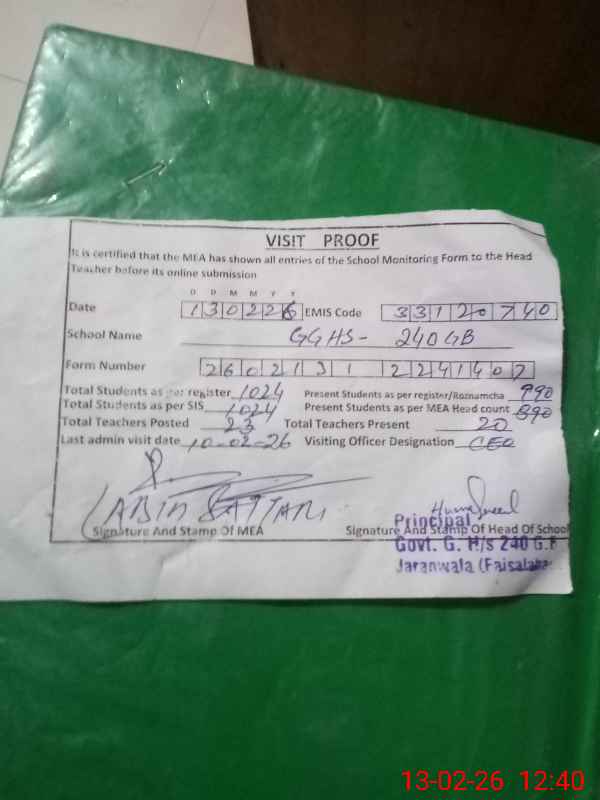 VISIT PROOF
It is certified that the MEA has shown all entries of the School Monitoring Form to the Head
Teacher before its online submission
D D M M Y Y
Date 130226 EMIS Code 33120740
School Name GGHS- 240GB
Form Number 2602131 2241407
Total Students as per register 1024 Present Students as per register/Roznamcha 990
Total Students as per SIS 1024 Present Students as per MEA Head count 890
Total Teachers Posted 23 Total Teachers Present 20
Last admin visit date 10-02-26 Visiting Officer Designation CEO
Signature And Stamp Of MEA Signature And Stamp Of Head Of School
Principal
Govt. G. H/s 240 G.B
Jaranwala (Faisalabad
13-02-26 12:40